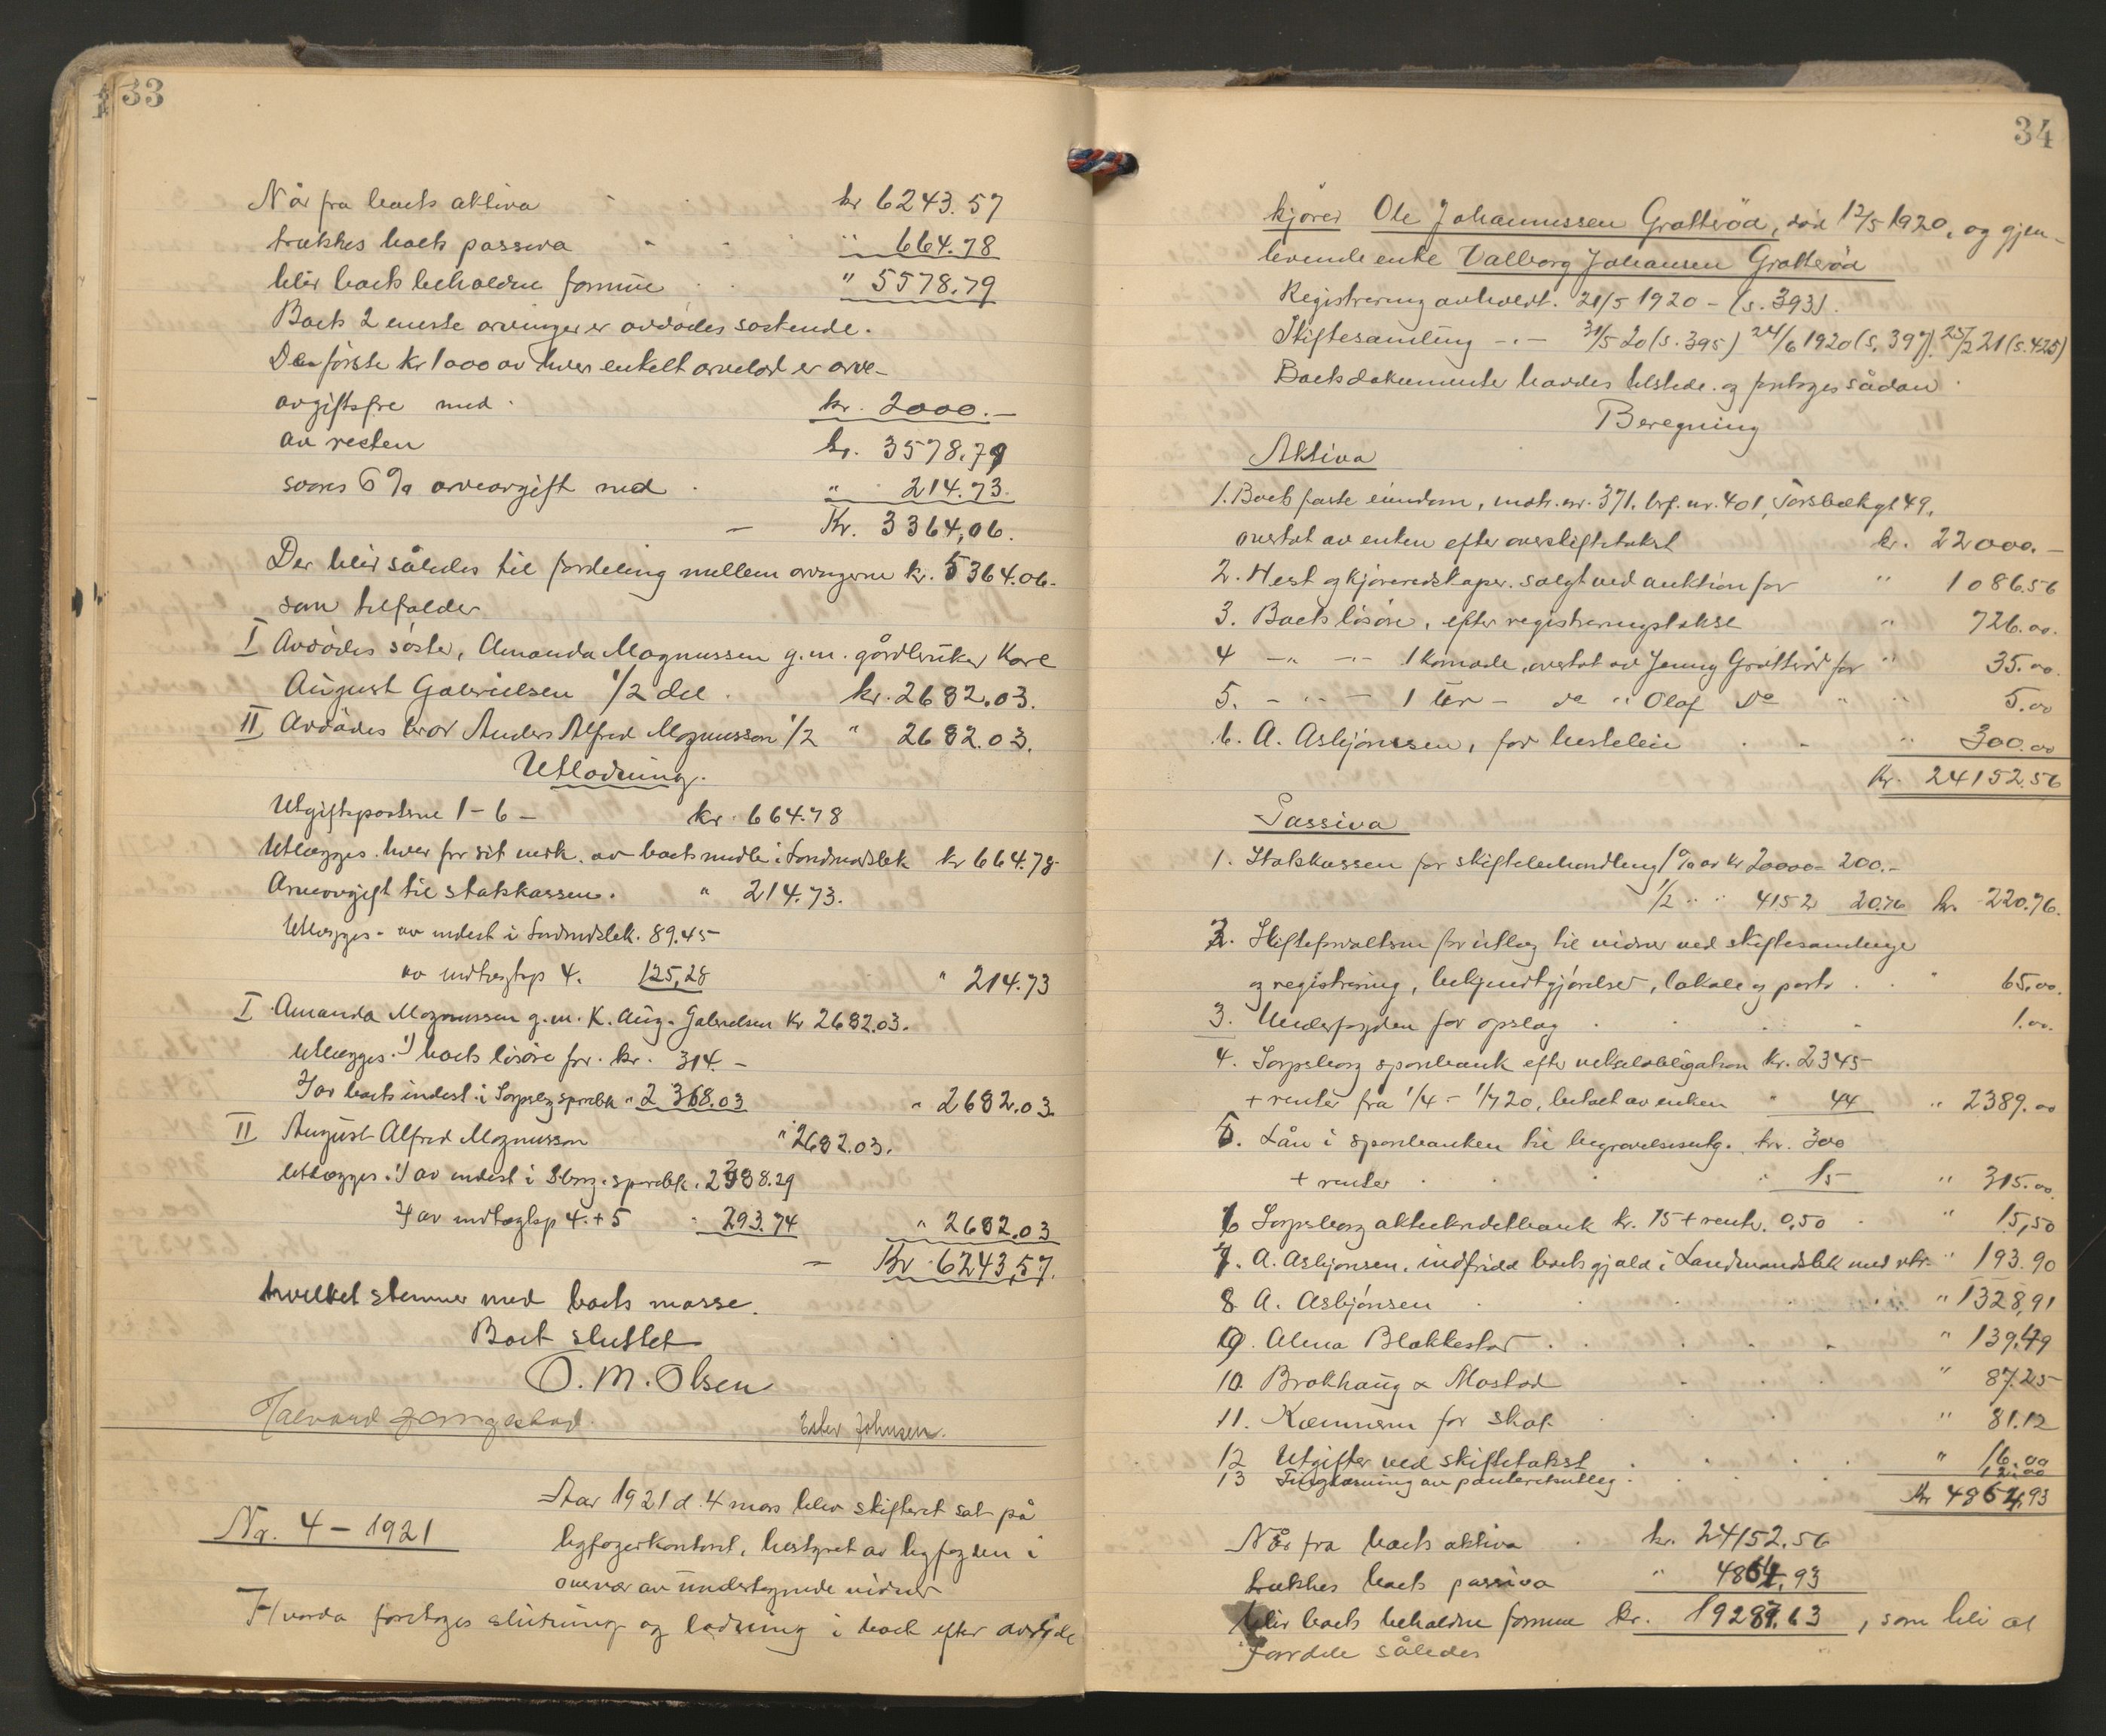 33
Når fra boets aktiva kr 6243.57
trækkes boets passiva " 664.78
blir boets beholdne formue " 5578.79
Boets 2 eneste arvinger er avdødes søskende.
Den første kr 1000 av hver enkelt arvelod er arve-
avgiftsfri med kr. 2000.—
av resten kr. 3578.79
svares 6% arveavgift med " 214.73.
— Kr. 3364,06.
Der blir således til fordeling mellem arvingerne kr. 5364.06.
som tilfalder
I Avdødes søster, Amanda Magnussen g.m. gårdbruker Karl
August Gabrielsen 1/2 del kr. 2682.03.
II Avdødes bror Anders Alfred Magnusson 1/2 " 2682.03.
Utlodning.
Utgiftspostene 1-6 - kr. 664.78
Utlægges hver for sit vedk. av boets midler i Landmandsbk kr 664.78
Arveavgift til statskassen. " 214.73.
Utlægges - av indest i Landmdsbk. 89.45
av indtægtsp 4. 125,28 " 214.73
I Amanda Magnussen g.m. K. Aug. Gabrielsen kr 2682.03.
Utlægges. 1) boets løsøre for. kr. 314.-
2) av boets indest. i Sarpsbg sparebk " 2368.03 " 2682.03.
II August Alfred Magnusson " 2682.03.
Utlægges. 1) av indest i Sbrg. sparebk. 2388.29
2) av indtægtsp 4.+5 " 293.74 " 2682.03
— Kr. 6243,57.
hvilket stemmer med boets masse.
Boet sluttet
O. M. Olsen
Halvard Ester Johnsen.
Nr. 4 - 1921
Aar 1921 d. 4 mars blev skifteret sat på
byfogedkontoret, bestyret av byfogden i
overvær av undertegnede vidner
Hvorda foretoges slutning og lodning i boet efter avdøde
34
kjører Ole Johannessen Grotterød, død 12/5 1920, og gjen-
levende enke Valborg Johansen Grotterød
Registrering avholdt. 21/5 1920 - (s. 393).
Skiftesamling -.- 31/5 20 (s. 395) 24/6 1920 (s. 397). 25/2 21 (s. 425)
Boets dokumenter havdes tilstede og foretoges sådan
Beregning
Aktiva
1. Boets faste eiendom, matr. nr. 371. brf. nr. 401, Torsbækgt 49,
overtat av enken efter overskiftetakst kr. 22000.—
2. Hest og kjøreredskaper. solgt ved auktion for " 1086.56
3. Boets løsøre, efter registreringstakst " 726.00.
4 -"- -"- 1 komode, overtat av Jenny Grotterød for " 35.00.
5. -"- - 1 ur - do " Olaf do " " 5.00
6. A. Asbjørnsen, for hesteleie " 300.00
Kr. 24152.56
Passiva
1. Statskassen for skiftebehandling 1% av kr 20000 = 200.-
1/2 " " 4152 20.76 kr. 220.76.
2. Skifteforvalteren for utlæg til vidner ved skiftesamlinge
og registrering, bekjendtgjørelser, lokale og porto " 65.00.
3. Underfogden for opslag 1.00.
4. Sarpsborg sparebank efter vekselobligation kr. 2345
+ renter fra 1/4 - 1/7 20, betalt av enken " 44 " 2389.00
5. Lån i sparebanken til begravelsesutg. kr. 300
+ renter " 15 " 315.00.
6 Sarpsborg aktiekreditbank kr. 15 + rente. 0,50 " 15,50
7. A. Asbjørnsen. indfridd boets gjæld i Landmandsbk med rtr. " 193.90
8 A. Asbjørnsen " 1328,91
9. Alma Blakkestad " 139.49
10. Brekhaug & Mostad " 87.25
11. Kæmneren for skat " 81.12
12 Utgifter ved skiftetakst " 16.00
13 Tinglæsning av panteretsutlæg 12.00
Kr 4864,93
Når fra boets aktiva kr. 24152.56
trækkes boets passiva " 4864,93
blir boets beholdne formue kr. 19287.63, som blir at
fordele således